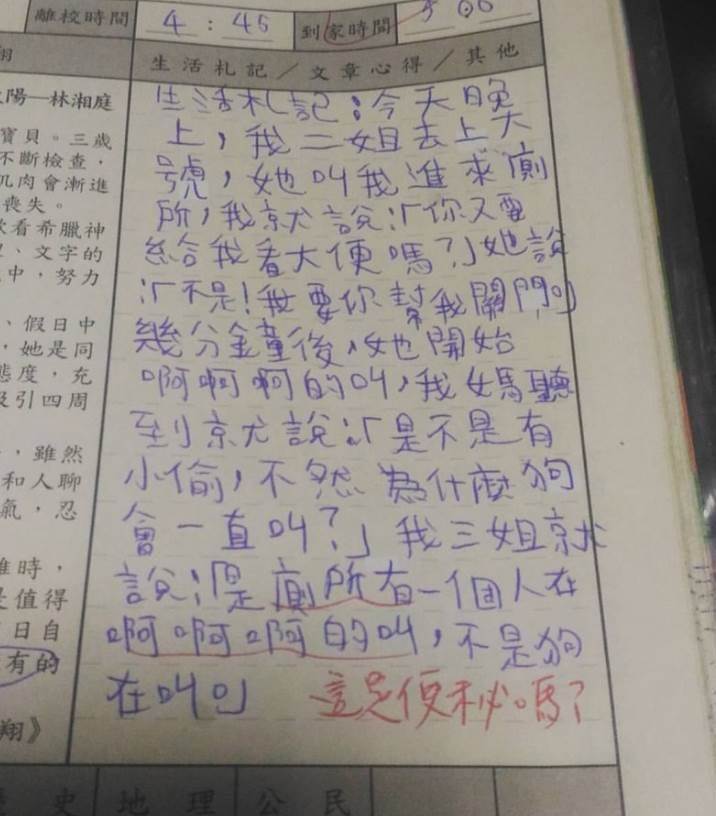 離校時間 4:45 到家時間 5 00
翔
生活札記／文章心得／其他
陽—林湘庭
寶貝。三歲
不斷檢查，
肌肉會漸進
喪失。
欢看希臘神
、文字的
中，努力
、假日中
，她是同
態度，充
吸引四周
，雖然
和人聊
氣，忍
難時，
是值得
日自
有的
翔》
生活札記：今天晚
上，我二姐去上大
號，她叫我進來廁
所，我就說：「你又要
給我看大便嗎？」她說
：「不是！我要你幫我關門。」
幾分鐘後，她開始
啊啊啊的叫，我媽聽
到就說：「是不是有
小偷，不然為什麼狗
會一直叫？」我三姐就
說：「是廁所有一個人在
啊啊啊的叫，不是狗
在叫。」
這是便秘嗎？
歷史 地理 公民